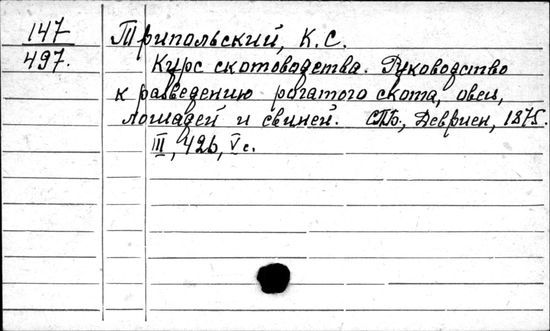 147 Трипольский, К.С.
497. Курс скотоводства. Руководство
к разведению рогатого скота, овец,
лошадей и свиней. СПб., Девриен, 1875.
III, 426, V с.